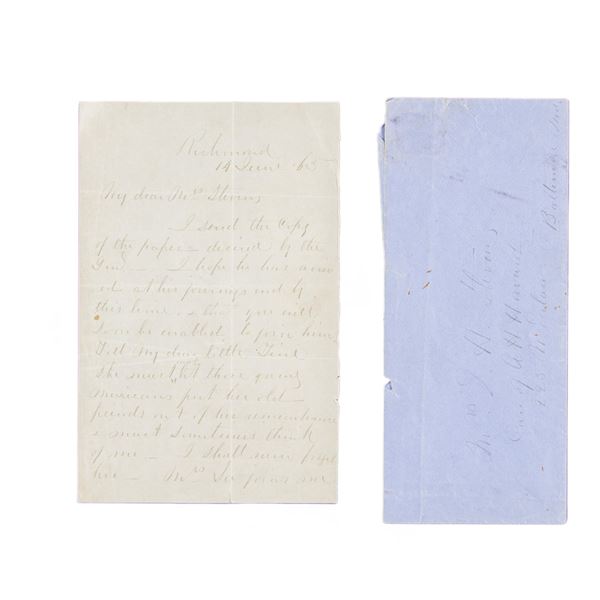 Richmond
14 June '65
My dear Mrs Stevens
I send the Copy
of the paper desired by the
Genl — I hope he has arriv
ed at his journeys end by
this time, & that you will
soon be enabled to join him.
Tell my dear little
She must let those young
Mexicans put her old
friends out of her remembrance
& must sometimes think
of me — I shall never forget
her — Mrs Lee joins me
Mrs J. H. Stevens
Care of
Baltimore Md